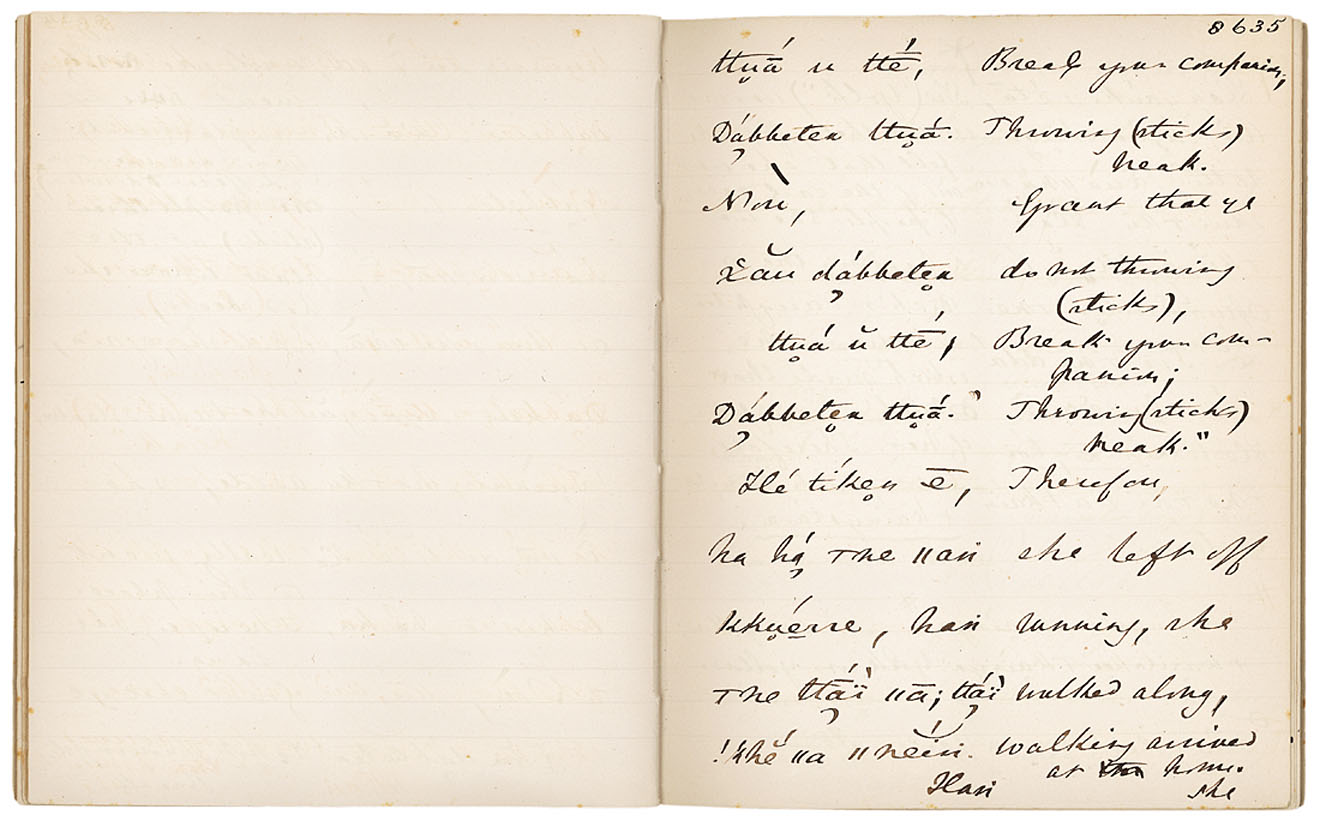 8635
ttu̥ā́ u ttḗ, Break your companion,
Dábbeten ttu̥ā́. Throwing (sticks)
neak.
Ṅou, Grant that ye
X̆au dábbete̥n do not throwing
(sticks),
ttu̥á ŭ ttḗ, Break your com-
panion;
Dábbete̥n ttu̥ā́." Throwing (sticks)
neak."
Hé tíke̥n ē, Therefore,
ha há̦ ꞇne ǁan she left off
kku̥érre, han running, she
ꞇne ttā́ï ǁā; ttáï walked along,
!k'hĕ́ ǁa ǁnĕin. walking arrived
at home.
Han she